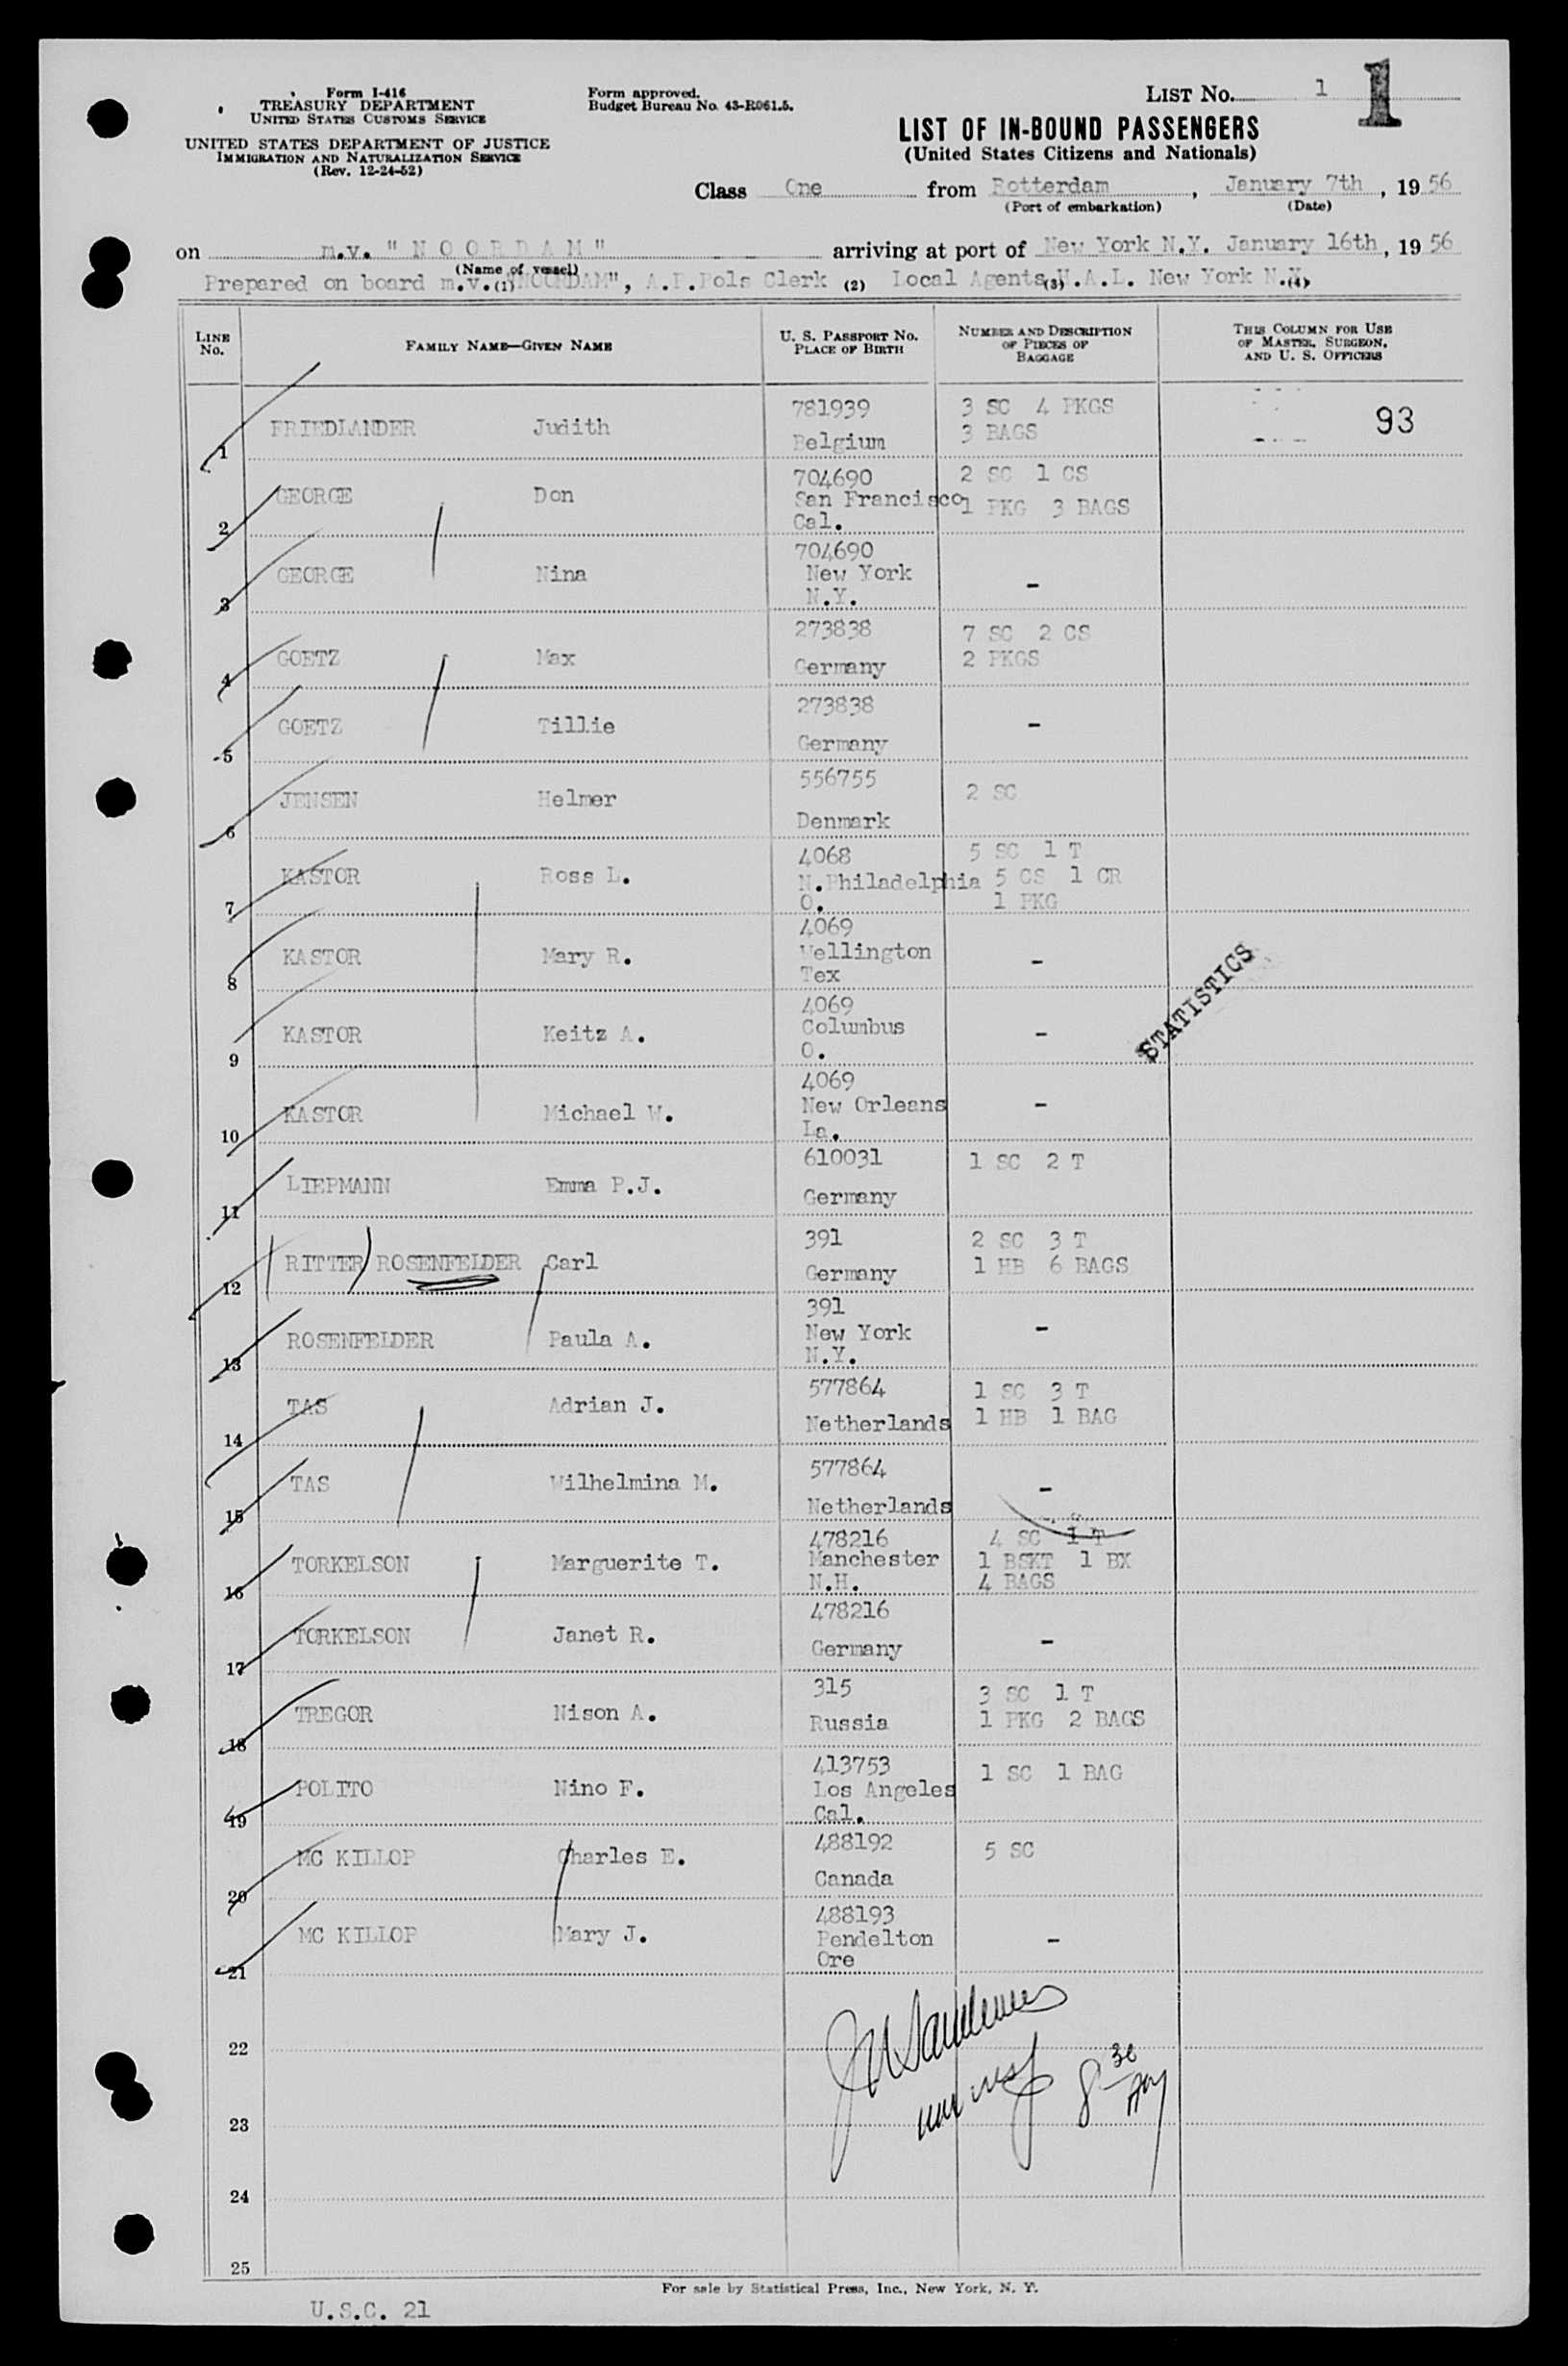 Form I-416
TREASURY DEPARTMENT
UNITED STATES CUSTOMS SERVICE
UNITED STATES DEPARTMENT OF JUSTICE
IMMIGRATION AND NATURALIZATION SERVICE
(Rev. 12-24-52)
Form approved.
Budget Bureau No. 43-R061.5.
LIST No. 1 1
LIST OF IN-BOUND PASSENGERS
(United States Citizens and Nationals)
Class One from Rotterdam, January 7th, 19 56
(Port of embarkation) (Date)
on m.v. "NOORDAM" arriving at port of New York N.Y. January 16th, 19 56
(Name of vessel)
Prepared on board m.v. (1) "NOORDAM", A.P.Pols Clerk (2) Local Agents (3) H.A.L. New York N.Y. (4)
LINE No. FAMILY NAME—GIVEN NAME U. S. PASSPORT No. PLACE OF BIRTH NUMBER AND DESCRIPTION OF PIECES OF BAGGAGE THIS COLUMN FOR USE OF MASTER, SURGEON, AND U. S. OFFICERS
1 FRIEDLANDER Judith 781939 Belgium 3 SC 4 PKGS 3 BAGS 93
2 GEORGE Don 704690 San Francisco Cal. 2 SC 1 CS 1 PKG 3 BAGS
3 GEORGE Nina 704690 New York N.Y. -
4 GOETZ Max 273838 Germany 7 SC 2 CS 2 PKGS
5 GOETZ Tillie 273838 Germany -
6 JENSEN Helmer 556755 Denmark 2 SC
7 KASTOR Ross L. 4068 N.Philadelphia O. 5 SC 1 T 5 CS 1 CR 1 PKG
8 KASTOR Mary R. 4069 Wellington Tex -
9 KASTOR Keitz A. 4069 Columbus O. -
STATISTICS
10 KASTOR Michael W. 4069 New Orleans La. -
11 LIEPMANN Emma P.J. 610031 Germany 1 SC 2 T
12 RITTER) ROSENFELDER Carl 391 Germany 2 SC 3 T 1 HB 6 BAGS
13 ROSENFELDER Paula A. 391 New York N.Y. -
14 TAS Adrian J. 577864 Netherlands 1 SC 3 T 1 HB 1 BAG
15 TAS Wilhelmina M. 577864 Netherlands -
16 TORKELSON Marguerite T. 478216 Manchester N.H. 4 SC 1 T 1 BSKT 1 BX 4 BAGS
17 TORKELSON Janet R. 478216 Germany -
18 TREGOR Nison A. 315 Russia 3 SC 1 T 1 PKG 2 BAGS
19 POLITO Nino F. 413753 Los Angeles Cal. 1 SC 1 BAG
20 MC KILLOP Charles E. 488192 Canada 5 SC
21 MC KILLOP Mary J. 488193 Pendelton Ore -
22
23 8 30
24
25
For sale by Statistical Press, Inc., New York, N. Y.
U.S.C. 21